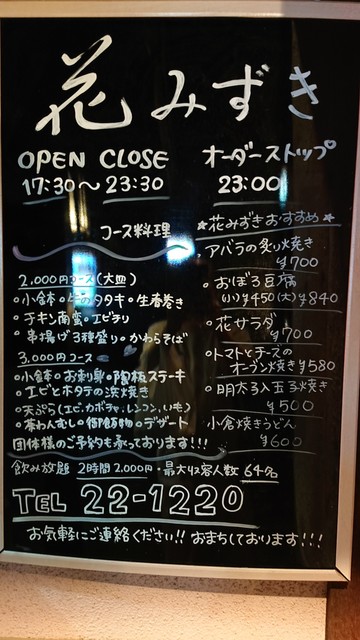 花みずき
OPEN CLOSE
17:30～23:30
オーダーストップ
23:00
コース料理
2,000円コース(大皿)
・小鉢・牛のタタキ・生春巻き
・チキン南蛮・エビチリ
・串揚げ3種盛り・かわらそば
3,000円コース
・小鉢・お刺身・陶板ステーキ
・エビとホタテの浜焼き
・天ぷら(エビ、カボチャ、レンコン、いも)
・茶わんむし・デザート
団体様のご予約も承っております!!!
★花みずきおすすめ★
アバラの炙り焼き
¥700
・おぼろ豆腐
(小)¥450(大)¥840
・花サラダ
¥700
・トマトとチーズの
オーブン焼き¥580
・明太入玉子焼き
¥500
小倉焼きうどん
¥600
飲み放題 2時間2,000円・最大収容人数64名
TEL 22-1220
お気軽にご連絡ください!! おまちしております!!!